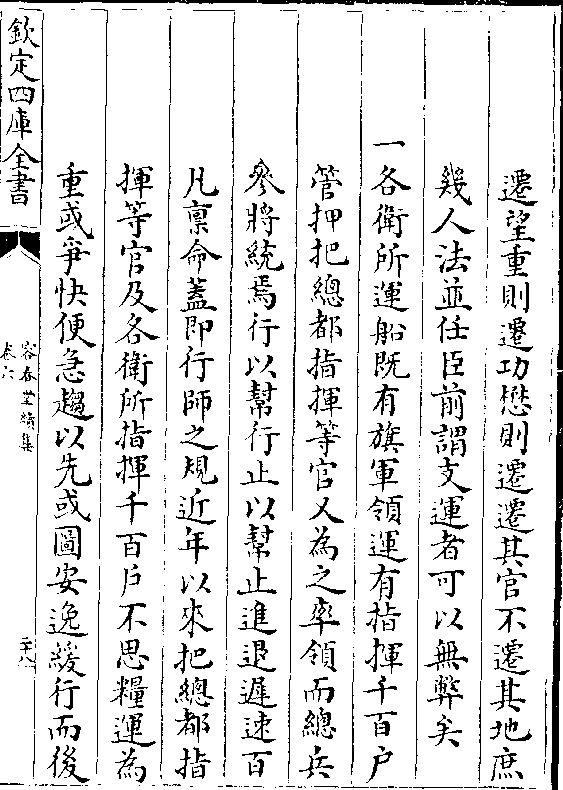 遷望重則遷功懋則遷遷其官不遷其地庶
幾人法並任臣前謂支運者可以無弊矣
一各衛所運船既有旗軍領運有指揮千百户
管押把總都指揮等官又為之率領而總兵
叅將統焉行以幫行止以幫止進退遲速百
凡禀命蓋即行師之規近年以來把總都指
揮等官及各衛所指揮千百戶不思糧運為
重或爭快便急趨以先或圖安逸緩行而後
欽定四庫全書
容春堂續集
卷六
二十八